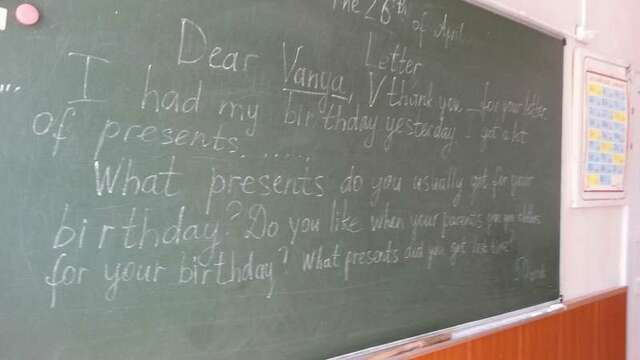 The 26th of April
Letter
Dear Vanya, thank you for your letter.
I had my birthday yesterday. I got a lot
of presents.......
What presents do you usually get for your
birthday? Do you like when your parents give you clothes
for your birthday? What presents did you get last time?